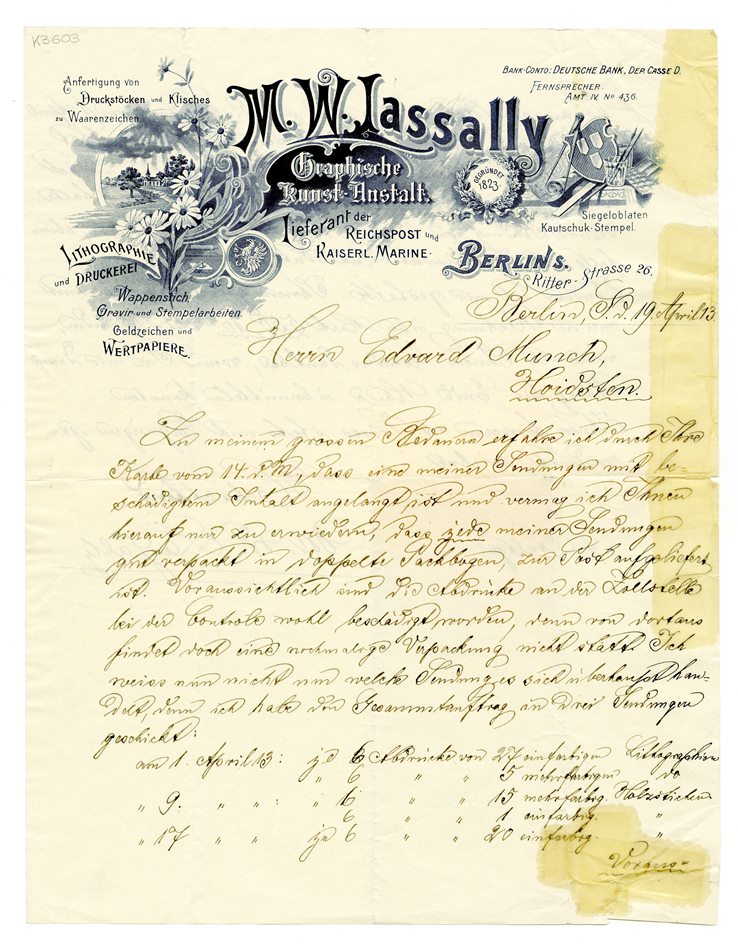 K3603
Anfertigung von
Druckstöcken und Klisches
zu Waarenzeichen.
M. W. Lassally
Graphische
Kunst-Anstalt.
Lieferant der
Reichspost und
Kaiserl. Marine.
BANK-CONTO: DEUTSCHE BANK, DEP. CASSE D.
FERNSPRECHER:
AMT IV. No 436.
GEGRÜNDET
1823.
Siegeloblaten
Kautschuk-Stempel.
LITHOGRAPHIE
und DRUCKEREI
Wappenstich.
Gravir- und Stempelarbeiten.
Geldzeichen und
WERTPAPIERE.
BERLIN S.
Ritter-Strasse 26.
Berlin, S. d. 19. April 13
Herrn Edvard Munch,
Hvidsten.
Zu meinem grossen Bedauern erfahre ich durch Ihre
Karte vom 14. d. M., dass eine meiner Sendungen mit be-
schädigtem Inhalt angelangt ist und vermag ich Ihnen
hierauf nur zu erwiedern, dass jede meiner Sendungen
gut verpackt in doppelte Packbogen, zur Post aufgeliefert
ist. Voraussichtlich sind die Abdrücke an der Zollstelle
bei der Controle wohl beschädigt worden, denn von dortaus
findet doch eine nochmalige Verpackung nicht statt. Ich
weiss nun nicht um welche Sendung es sich überhaupt han-
delt, denn ich habe den Gesammtauftrag in drei Sendungen
geschickt:
am 1. April 13: je 6 Abdrücke von 27 einfarbigen Lithographien
" 6 " " 5 mehrfarbigen do
" 9. " " : " 6 " " 15 mehrfarbg. Holzstichen
6 " " 1 einfarbig. "
" 17 " " je 6 " " 20 einfarbg. "
Voraus-